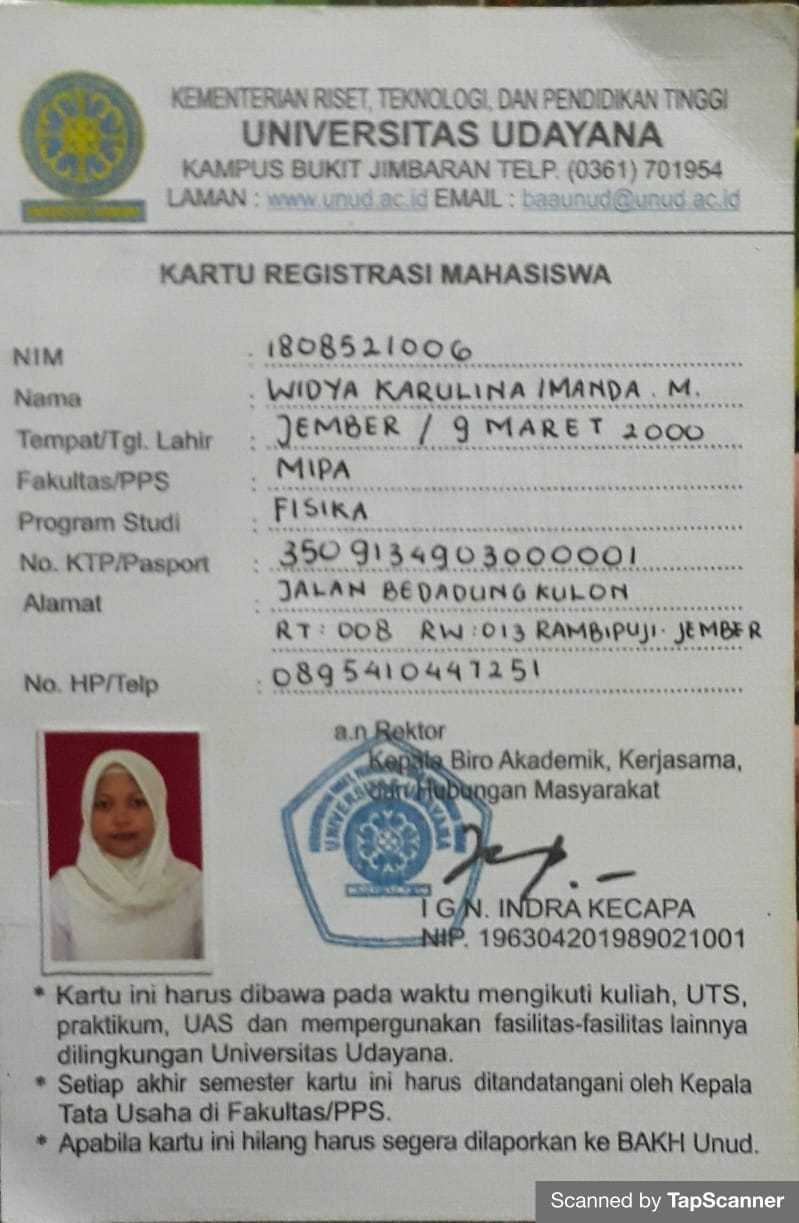 KEMENTERIAN RISET, TEKNOLOGI, DAN PENDIDIKAN TINGGI
UNIVERSITAS UDAYANA
KAMPUS BUKIT JIMBARAN TELP. (0361) 701954
LAMAN : www.unud.ac.id EMAIL : baaunud@unud.ac.id
KARTU REGISTRASI MAHASISWA
NIM : 1808521006
Nama : WIDYA KARULINA IMANDA . M.
Tempat/Tgl. Lahir : JEMBER / 9 MARET 2000
Fakultas/PPS : MIPA
Program Studi : FISIKA
No. KTP/Pasport : 3509134903000001
Alamat : JALAN BEDADUNG KULON
RT : 008 RW : 013 RAMBIPUJI - JEMBER
No. HP/Telp : 0895410447251
a.n Rektor
Kepala Biro Akademik, Kerjasama,
dan Hubungan Masyarakat
UNIVERSITAS UDAYANA
I G N. INDRA KECAPA
NIP. 196304201989021001
* Kartu ini harus dibawa pada waktu mengikuti kuliah, UTS,
praktikum, UAS dan mempergunakan fasilitas-fasilitas lainnya
dilingkungan Universitas Udayana.
* Setiap akhir semester kartu ini harus ditandatangani oleh Kepala
Tata Usaha di Fakultas/PPS.
* Apabila kartu ini hilang harus segera dilaporkan ke BAKH Unud.
Scanned by TapScanner